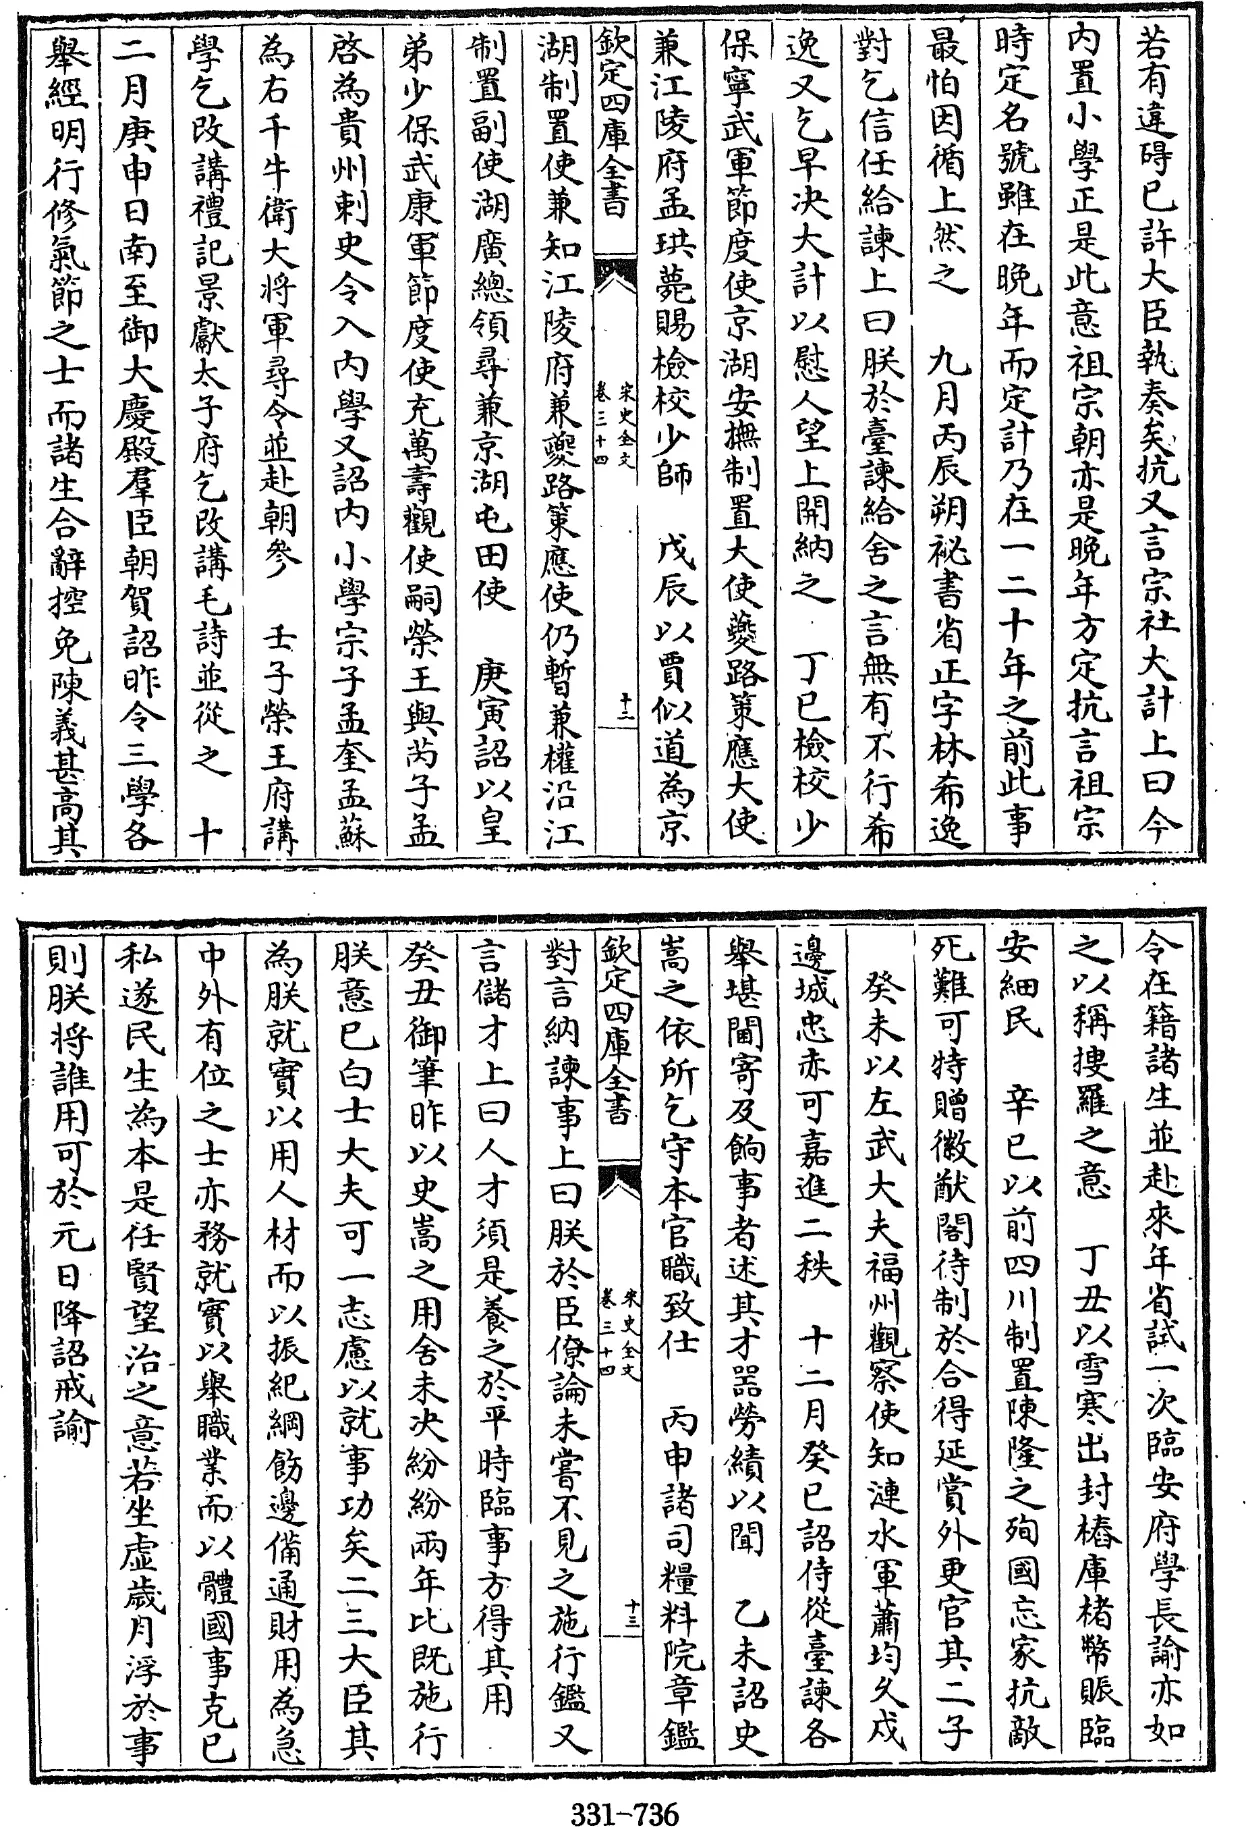 若有違碍已許大臣執奏矣抗又言宗社大計上曰今
内置小學正是此意祖宗朝亦是晚年方定抗言祖宗
時定名號雖在晚年而定計乃在一二十年之前此事
最怕因循上然之　九月丙辰朔祕書省正字林希逸
對乞信任給諫上曰朕於臺諫給舍之言無有不行希
逸又乞早决大計以慰人望上開納之　丁巳檢校少
保寧武軍節度使京湖安撫制置大使夔路策應大使
兼江陵府孟珙薨賜檢校少師　戊辰以賈似道為京
欽定四庫全書
宋史全文
卷三十四
十二
湖制置使兼知江陵府兼夔路策應使仍暫兼權沿江
制置副使湖廣總領尋兼京湖屯田使　庚寅詔以皇
弟少保武康軍節度使充萬壽觀使嗣榮王與芮子孟
啓為貴州刺史令入内學又詔内小學宗子孟奎孟蘇
為右千牛衛大將軍尋令並赴朝參　壬子榮王府講
學乞改講禮記景獻太子府乞改講毛詩並從之　十
二月庚申日南至御大慶殿羣臣朝賀詔昨令三學各
舉經明行修氣節之士而諸生合辭控免陳義甚高其
令在籍諸生並赴來年省試一次臨安府學長諭亦如
之以稱搜羅之意　丁丑以雪寒出封樁庫楮幣賑臨
安細民　辛巳以前四川制置陳隆之殉國忘家抗敵
死難可特贈徽猷閣待制於合得延賞外更官其二子
癸未以左武大夫福州觀察使知漣水軍蕭均久戍
邊城忠赤可嘉進二秩　十二月癸巳詔侍從臺諫各
舉堪閫寄及餉事者述其才器勞績以聞　乙未詔史
嵩之依所乞守本官職致仕　丙申諸司糧料院章鑑
欽定四庫全書
宋史全文
卷三十四
十三
對言納諫事上曰朕於臣僚論未嘗不見之施行鑑又
言儲才上曰人才須是養之於平時臨事方得其用
癸丑御筆昨以史嵩之用舍未决紛紛兩年比既施行
朕意已白士大夫可一志慮以就事功矣二三大臣其
為朕就實以用人材而以振紀綱飭邊備通財用為急
中外有位之士亦務就實以舉職業而以體國事克己
私遂民生為本是任賢望治之意若坐虚歲月浮於事
則朕將誰用可於元日降詔戒諭
331-736